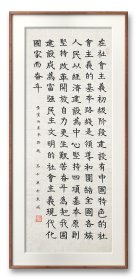 在社會主義初級階段建設有中國特色的社
會主義的基本路綫是領導和團結全國各族
人民以經濟建設為中心堅持四項基本原則
堅持改革開放自力更生艱苦奮斗為把我國
建設成為富强民主文明的社會主義現代化
國家而奮斗